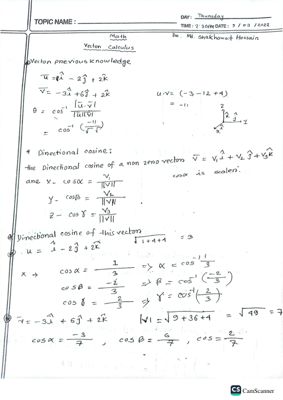 TOPIC NAME :
DAY : Thursday
TIME : 2:50pm DATE : 3 / 03 / 2022
Math
Dr. Md. Shakhawat Hossain
Vector Calculus
Vector previous knowledge
u̅ = î - 2ĵ + 2k̂
v̅ = -3î + 6ĵ + 2k̂
u·v = (-3 -12 +4)
= -11
θ = cos⁻¹ |u̅·v̅| / |u||v|
= cos⁻¹ (-11 /
Directional cosine:
the Directional cosine of a non zero vectors v̅ = v₁î + v₂ĵ + v₃k̂
are x- cosα = v₁/||v||
cosα is scaler.
y- cosβ = v₂/||v||
z- cosγ = v₃/||v||
Directional cosine of this vectors
√1+4+4 = 3
u = î - 2ĵ + 2k̂
x → cosα = 1/3 ⇒ α = cos⁻¹ 1/3
cosβ = -2/3 ⇒ β = cos⁻¹ (-2/3)
cosγ = 2/3 ⇒ γ = cos⁻¹ (2/3)
v̅ = -3î + 6ĵ + 2k̂
|v| = √9+36+4 = √49 = 7
cosα = -3/7 , cosβ = 6/7 , cos = 2/7
CS CamScanner